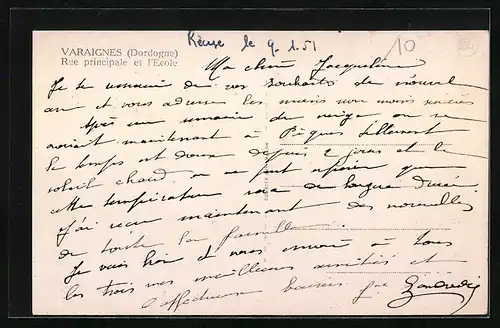 VARAIGNES (Dordogne)
Rue principale et l'Ecole
le 9.1.51
10
Ma chère Jacqueline
Je te remercie de vos souhaits de nouvel
an et vous adresse les miens non moins sincères
Après une semaine de neige on se
croirait maintenant à Pâques tellement
le temps est doux depuis 2 jours et le
soleil chaud on ne peut espérer que
cette température sera de longue durée.
J'ai reçu maintenant des nouvelles
de toute la famille.
Je vais bien et vous envoie à tous
les trois mes meilleures amitiés et
d'affectueux baisers